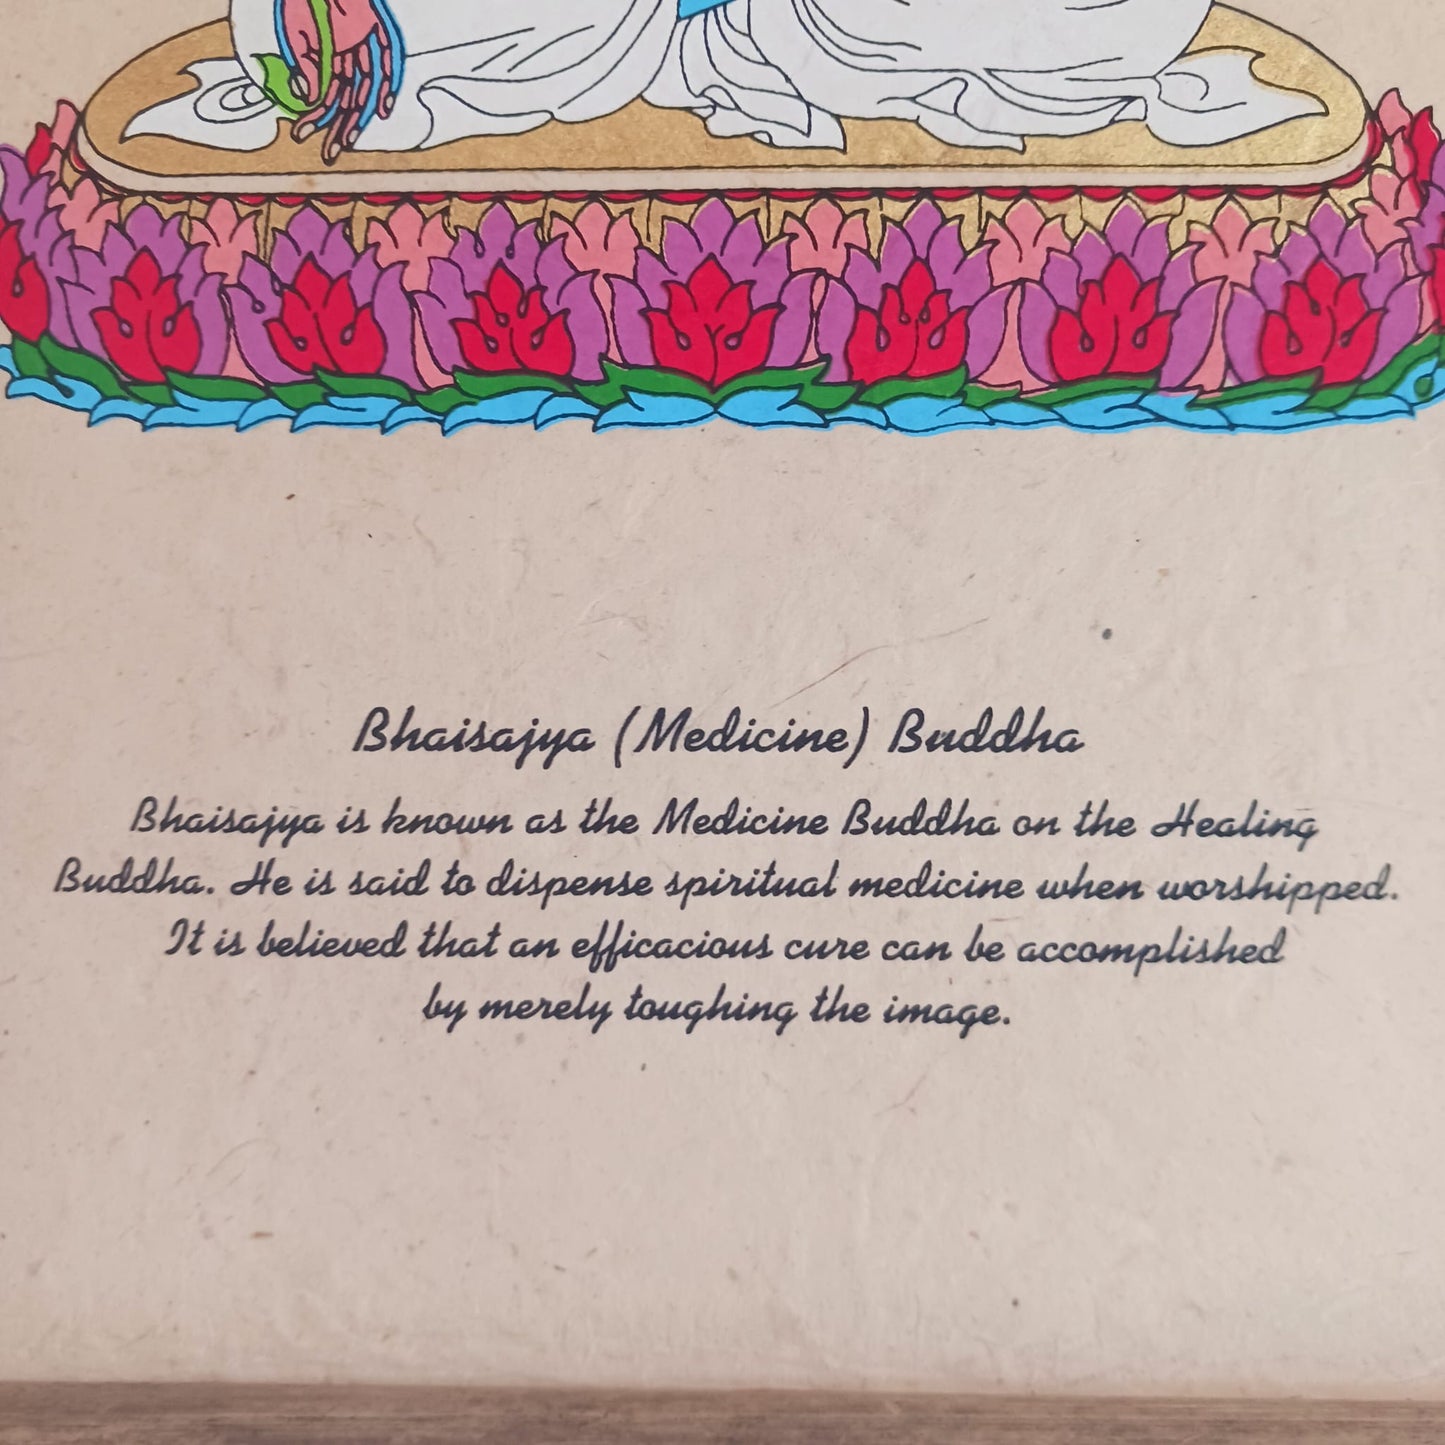 Bhaisajya (Medicine) Buddha
Bhaisajya is known as the Medicine Buddha on the Healing
Buddha. He is said to dispense spiritual medicine when worshipped.
It is believed that an efficacious cure can be accomplished
by merely toughing the image.